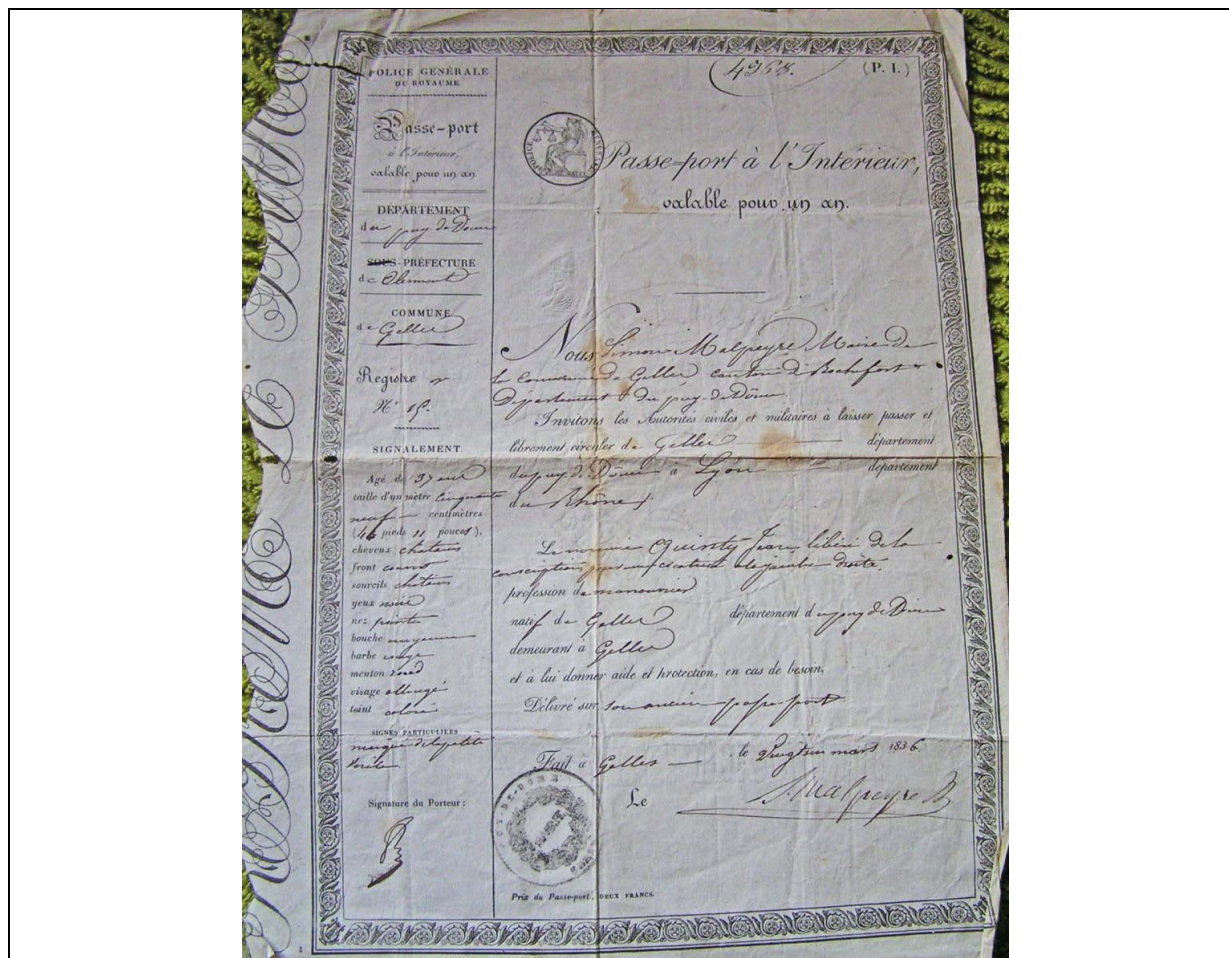 POLICE GÉNÉRALE
DU ROYAUME
Passe-port
à l'Intérieur,
valable pour un an
DÉPARTEMENT
du puy de Dôme
SOUS-PRÉFECTURE
de Clermont
COMMUNE
de Gelles
Registre
N°
SIGNALEMENT
Agé de 37 ans
taille d'un mètre cinquante
neuf centimètres
(4 pieds 11 pouces),
cheveux chatains
front couvert
sourcils chatains
yeux noirs
nez pointu
bouche moyenne
barbe rouge
menton rond
visage allongé
teint coloré
SIGNES PARTICULIERS
marqué de la petite
vérole
Signature du Porteur :
4968.
(P. I.)
Passe-port à l'Intérieur,
valable pour un an.
Nous Simon Malpeyre Maire de
la Commune de Gelles canton de Rochefort
Département du puy-de-Dôme
Invitons les Autorités civiles et militaires à laisser passer et
librement circuler de Gelles département
du puy de Dôme à Lyon département
du Rhône
Le nommé Quinty Jean libéré de la
conscription pour une cicatrice à la jambe droite.
profession de manouvrier
natif de Gelles département du puy de Dôme
demeurant à Gelles
et à lui donner aide et protection, en cas de besoin,
Délivré sur son ancien passe port
Fait à Gelles le Vingt un mars 1836.
Le S. Malpeyre
PUY-DE-DOME
Prix du Passe-port, DEUX FRANCS.